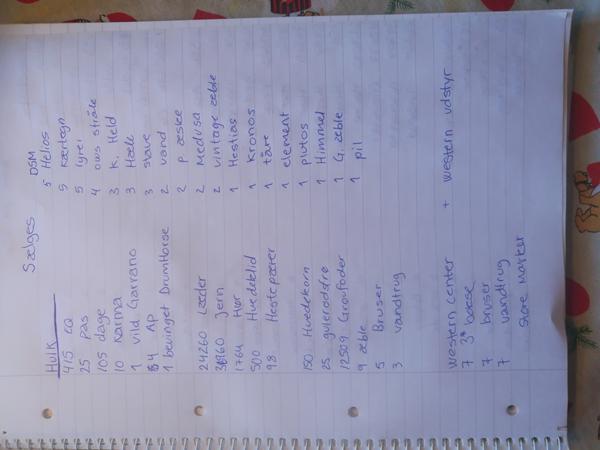 Sælges
Hulk
415 EQ
25 pas
105 dage
10 Karma
1 vild Garrano
4 AP
1 bevinget Drumhorse
24260 Læder
Jern
1764 Hør
500 Hvedeklid
98 Hestepærer
150 Hvedekorn
25 gulerodsfrø
12509 Grovfoder
9 æble
5 Bruser
3 vandtrug
DSM
5 Helios
5 Kærtegn
5 lyrei
4 ows stråle
3 K. Held
3 Hæle
3 stave
2 vand
2 P. æske
2 Medusa
2 vintage æble
1 Hestias
1 Kronos
1 tåre
1 element
1 plutos
1 Himmel
1 G. æble
1 pil
western center + western udstyr
7 3* bokse
7 bruser
7 vandtrug
Store Marker